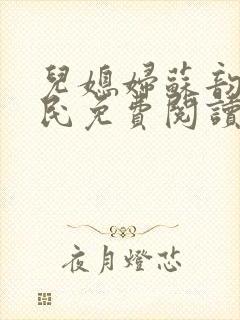 兒媳婦蘇韵
民免費閱讀
夜月燈芯